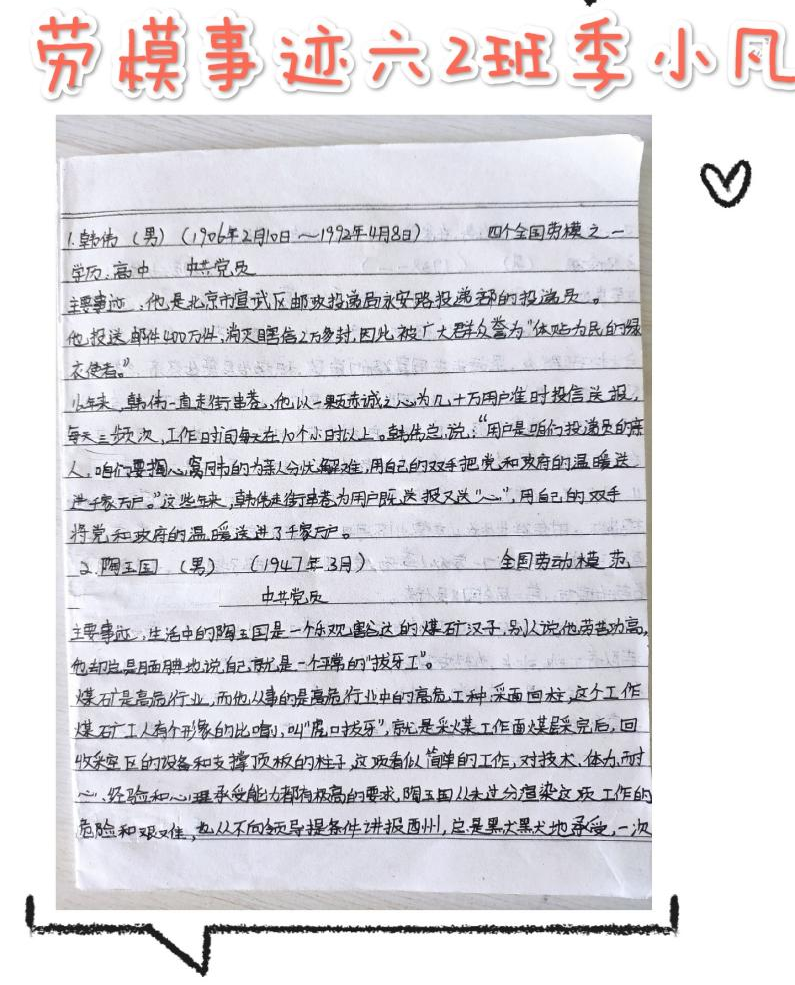 劳模事迹六2班季小凡
1.韩伟（男）（1906年2月10日～1992年4月8日） 四个全国劳模之一
学历：高中 中共党员
主要事迹：他是北京市宣武区邮政投递局永安路投递部的投递员。
他投送邮件400万件，消灭瞎信2万多封，因此被广大群众誉为"体贴为民的绿
衣使者。"
年来，韩伟一直走街串巷，他以一颗赤诚之心为几十万用户准时投信送报，
每天三频次，工作时间每天在10个小时以上。韩伟总说："用户是咱们投递员的亲
人，咱们要掏心窝同市的为亲人分忧解难，用自己的双手把党和政府的温暖送
进千家万户。"这些年来，韩伟走街串巷为用户既送报又送"心"，用自己的双手
将党和政府的温暖送进了千家万户。
2.陶玉国（男）（1947年3月） 全国劳动模范、
中共党员
主要事迹：生活中的陶玉国是一个乐观豁达的煤矿汉子，别人说他劳苦功高，
他却总是腼腆地说自己就是一个平常的"拔牙工"。
煤矿是高危行业，而他从事的是高危行业中的高危工种，采面回柱，这个工作
煤矿工人有个形象的比喻，叫"虎口拔牙"，就是采煤工作面煤层采完后，回
收采空区的设备和支撑顶板的柱子，这项看似简单的工作，对技术、体力、耐
心、经验和心理承受能力都有极高的要求，陶玉国从未过分渲染这项工作的
危险和艰难，也从不向领导提条件讲报酬，总是默默地承受，一次